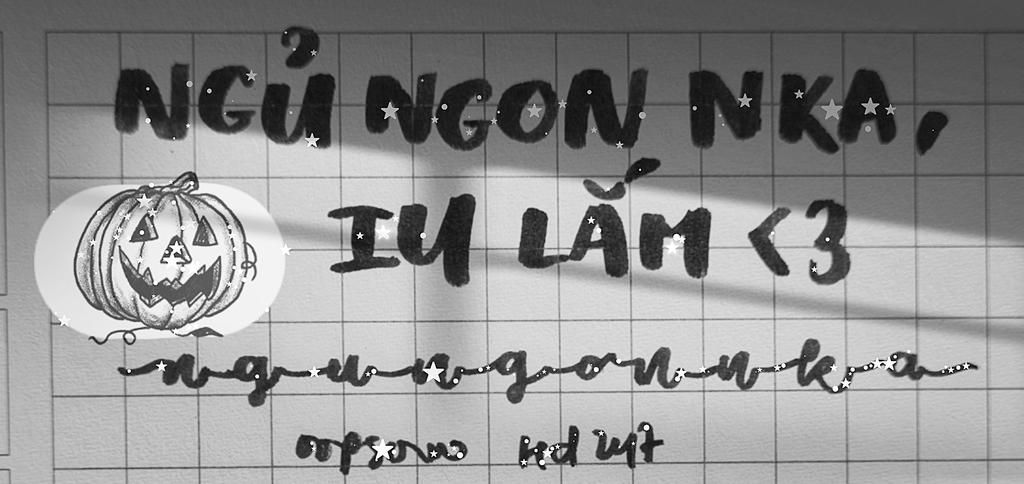 NGỦ NGON NKA,
IU LẮM <3
ngungonnka